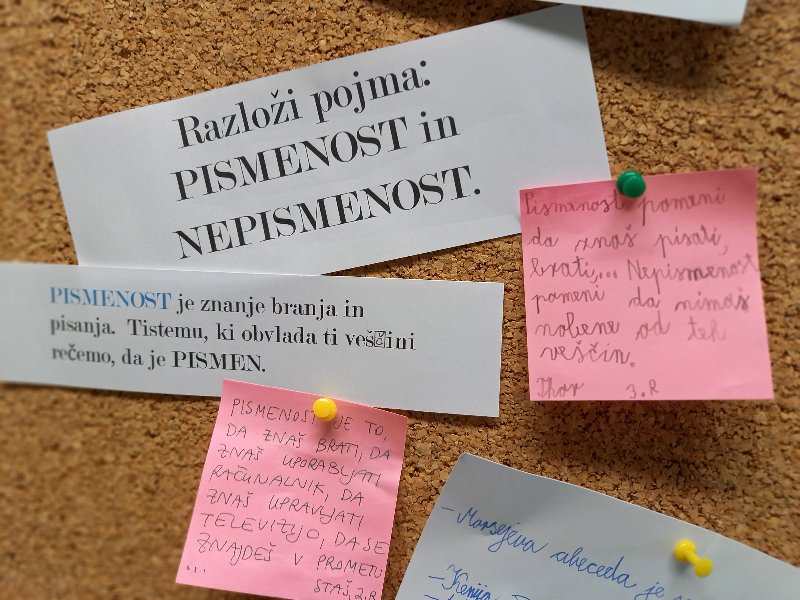 Razloži pojma:
PISMENOST in
NEPISMENOST.
PISMENOST je znanje branja in
pisanja. Tistemu, ki obvlada ti vešini
rečemo, da je PISMEN.
Pismenost pomeni
da znaš pisati,
brati,... Nepismenost
pomeni da nimaš
nobene od teh
veščin.
Thor 3.R
PISMENOST JE TO,
DA ZNAŠ BRATI, DA
ZNAŠ UPORABLJATI
RAČUNALNIK, DA
ZNAŠ UPRAVLJATI
TELEVIZIJO, DA SE
ZNAJDEŠ V PROMETU
...
STAŠ, 2.R
- Morsejeva abeceda je
- Kenija